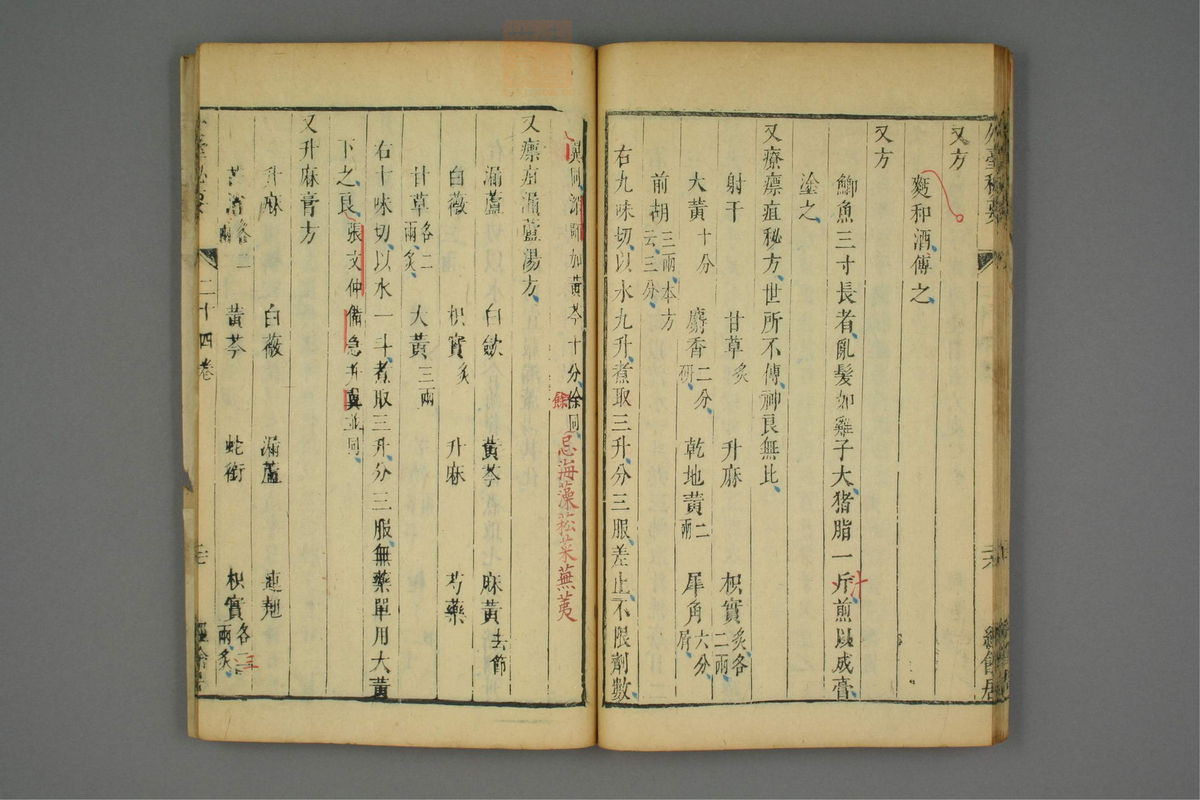 外臺秘要
又方
麪和酒傅之
又方
鯽魚三寸長者亂髮如雞子大猪脂一斤煎以成膏
升
塗之
又療瘭疽秘方世所不傳神良無比
射干 甘草炙 升麻 枳實炙各二兩
大黃十分 麝香二分研 乾地黃二兩 犀角六分屑
前胡三兩本方云三分
右九味切以水九升煮取三升分三服差止不限劑數
黃芩十分徐同
餘
忌海藻菘菜蕪荑
又瘭疽漏蘆湯方
漏蘆 白斂 黃芩 麻黃去節
白薇 枳實炙 升麻 芍藥
甘草各二兩炙 大黃三兩
右十味切以水一斗煮取三升分三服無藥單用大黃
下之良張文仲備急並同
又升麻膏方
升麻 白薇 漏蘆 連翹
黃芩 蛇銜 枳實各三兩炙
二十四卷